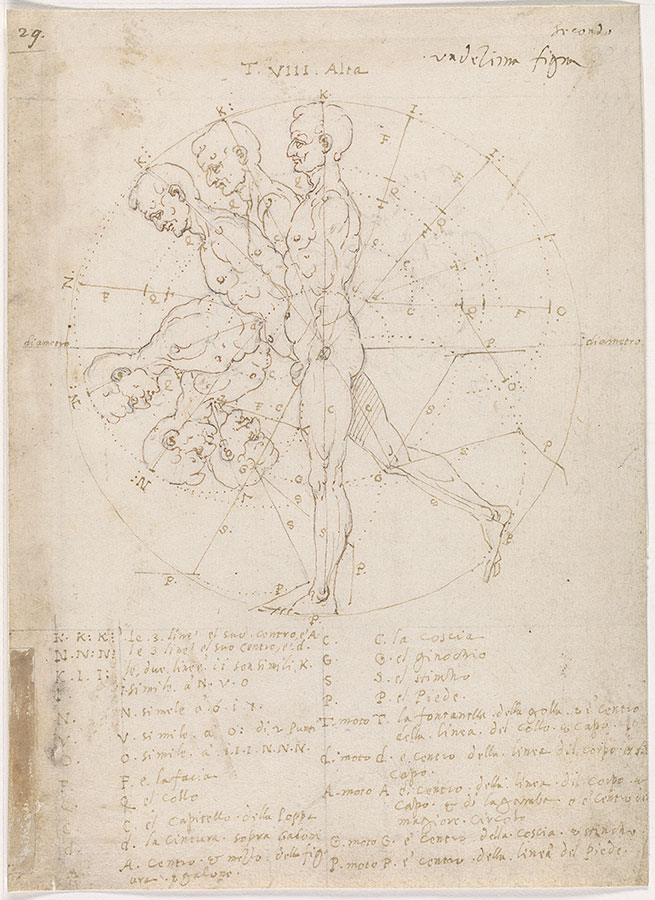 29.
secondo
undecima figura
T. VIII. Alta
K:
K:
K.
I.
I.
F
F
Q
Q
C
N
F
Q
Q
F
O
diametro
diametro
P
O
N:
:N
F
C
C
C
G
G
G
S
S
S
S
S
P
P.
P
P
P
P.
K: K: K: le .3. linee el suo centro, è A
N: N: N: le 3 linee el suo centro, è .d.
K. I. I: le, due linee ii son simili, K.
I. simile. à N. V. O
N. N. simele à. O. I.
V. V. simile. à O: di 2 punti
O. O. simile. à I. I. I. N. N. N.
F. F. e. la facia
Q. Q. el collo
C. C. el Capitello. della poppa
d. d. la Cintura. sopra Galoni
A. Centro. & mezzo. della fig
ura. & galone.
C. C. la coscia
G. G. el ginochio
S. S. el stincho
P. P. el Piede.
T. moto T. la fontanella. della golla. & è Centro
della linea. del collo. & Capo
d. moto d. è Centro. della. linea. del corpo. &
Capo.
A. moto A è Centro. della. linea. del Corpo. &
Capo. & di la gamba. o è Centro
magiore. Circolo
G. moto G. è Centro. della Coscia. & stincho
P. moto P. e' centro. della. linea. del Piede.